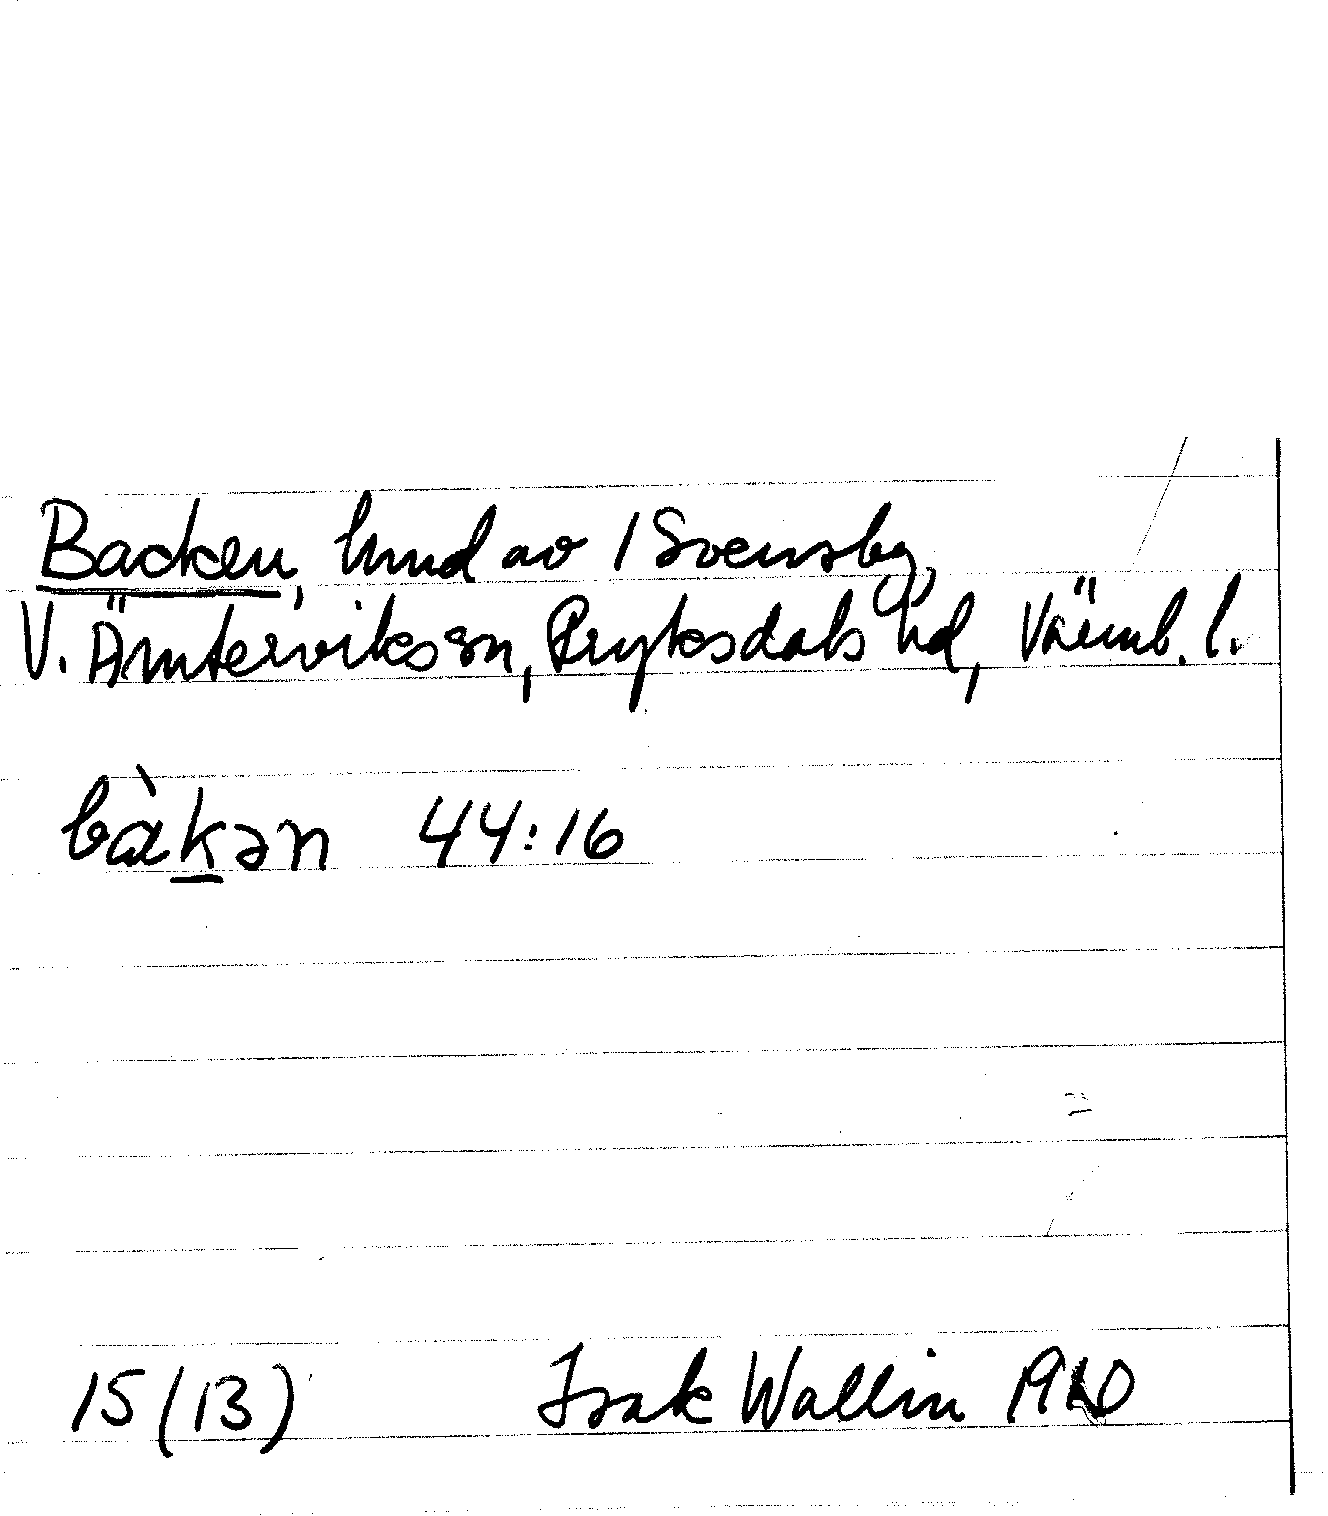 Backen, hmd av 1 Svensby,
V. Ämterviks sn, Fryksdals hd, Värml. l.
bàkən 44:16
15 (13) Isak Wallin 1910